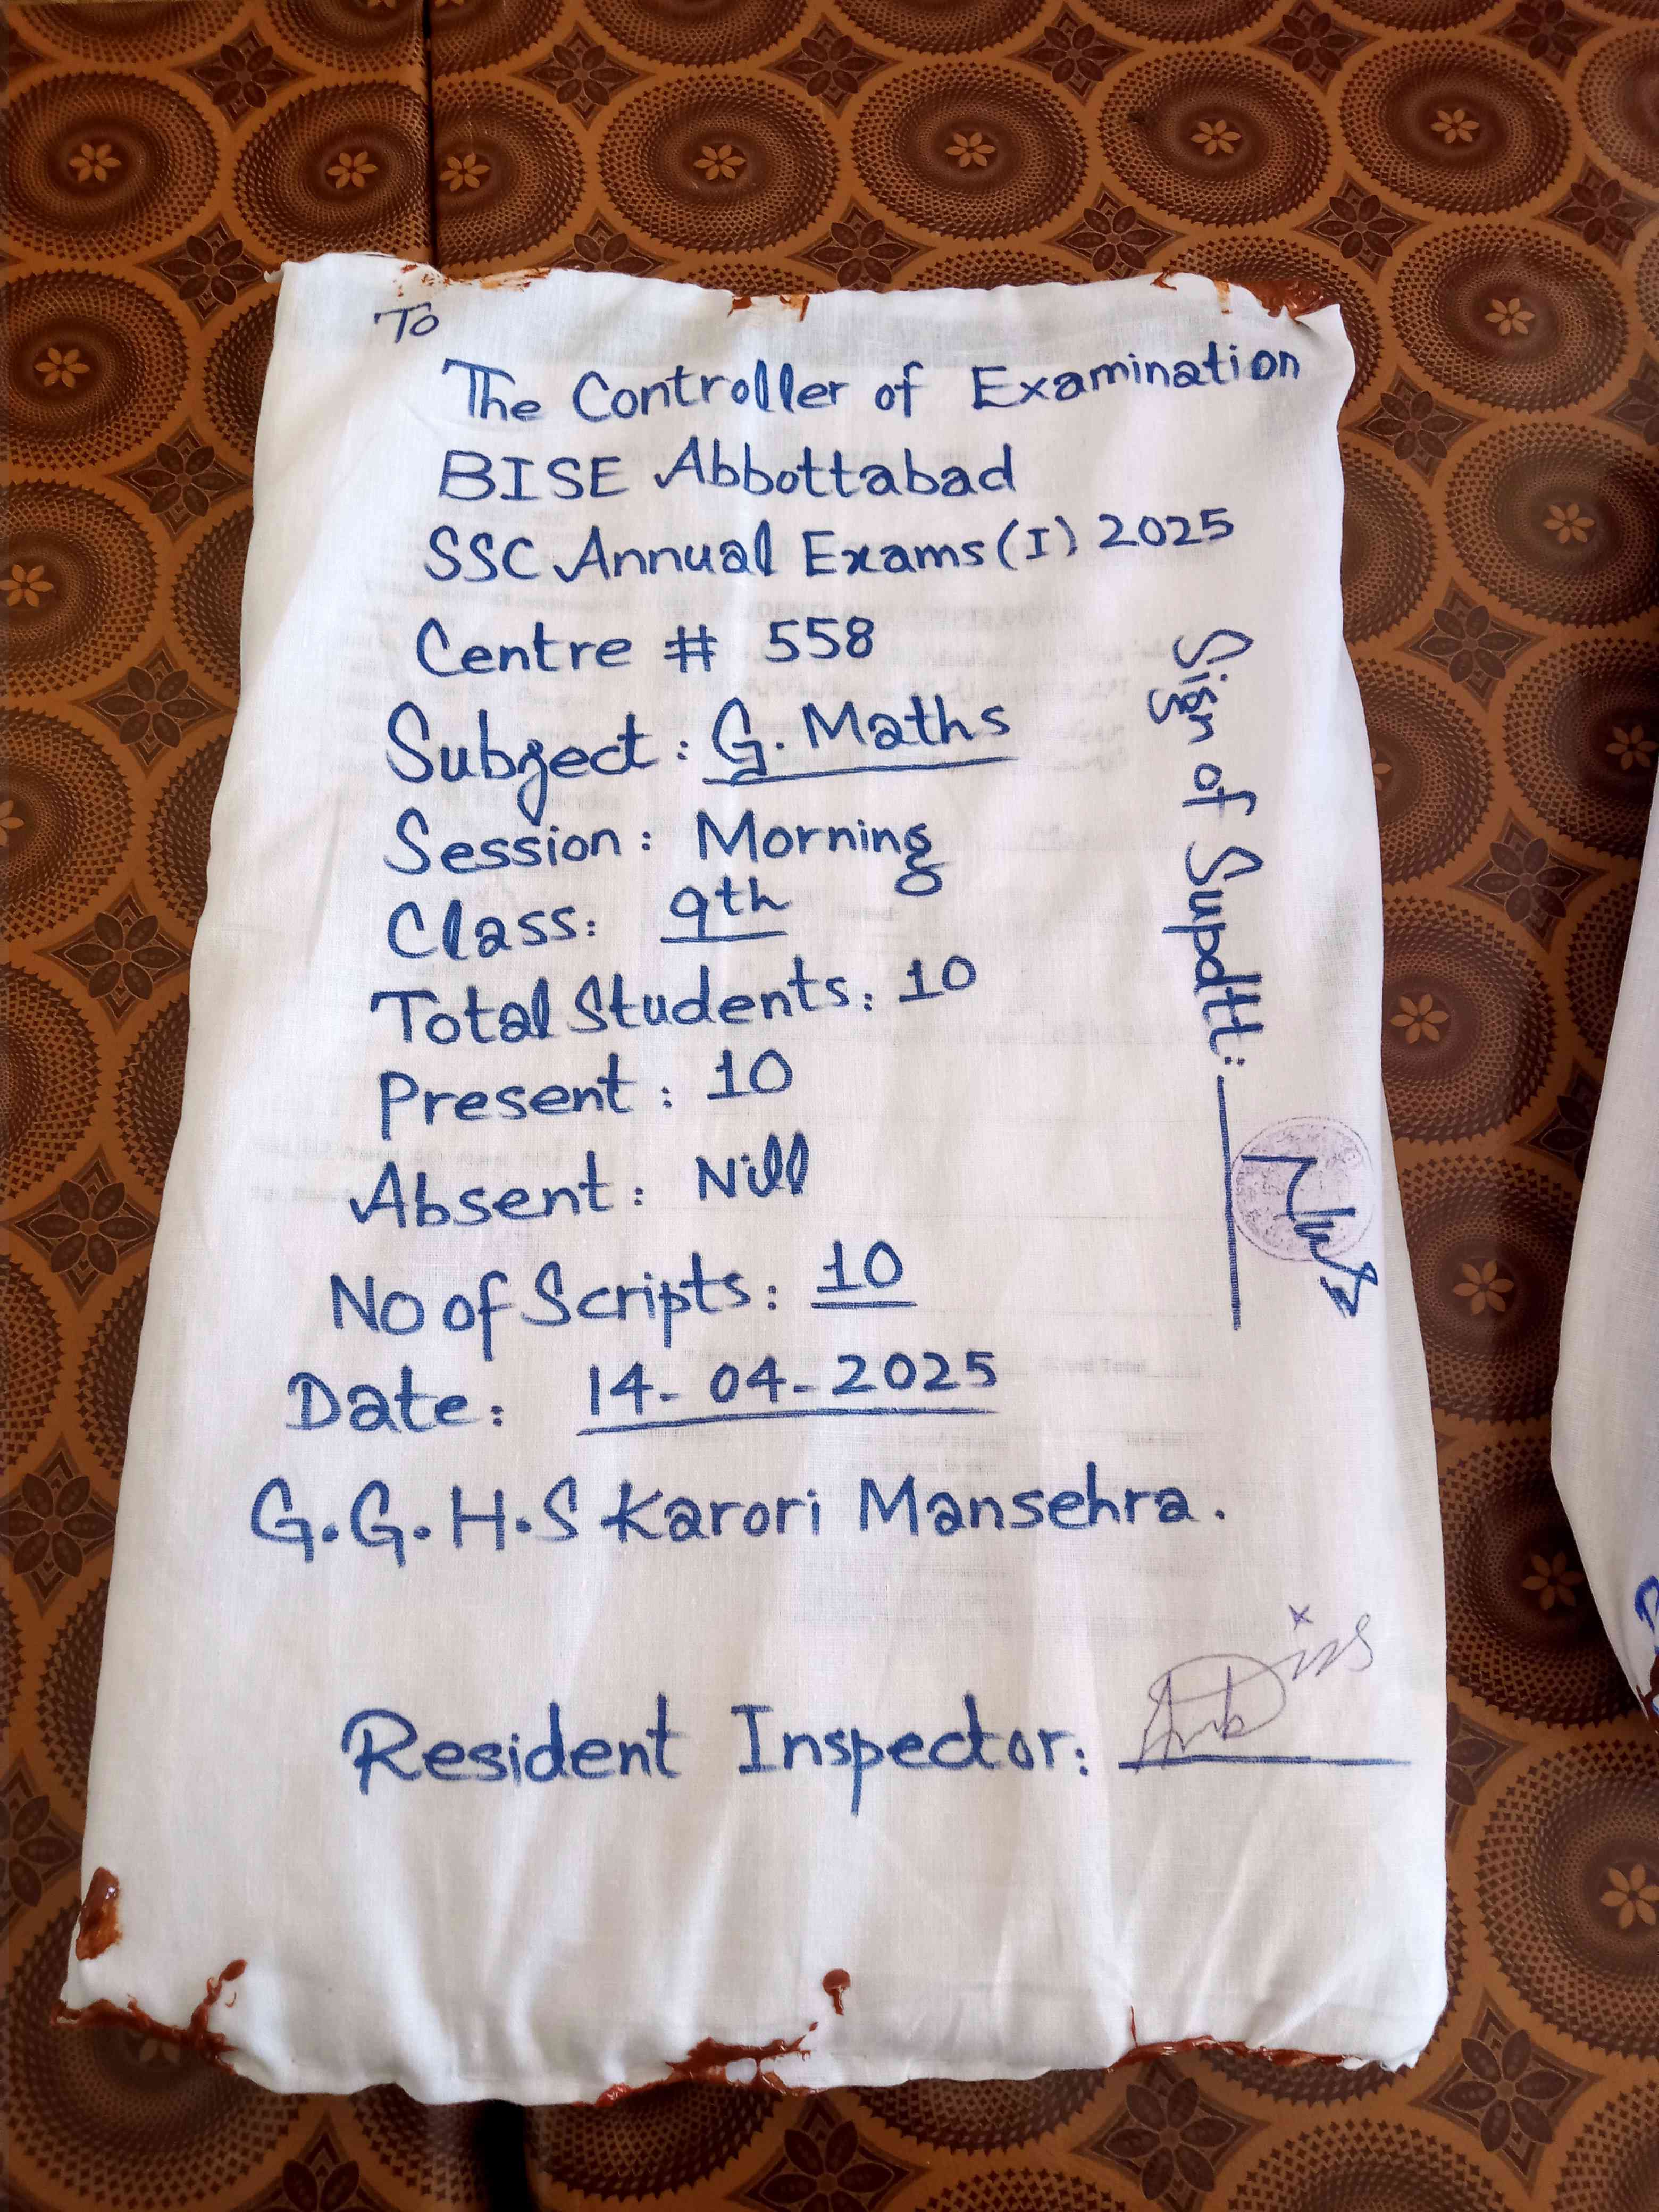 To
The Controller of Examination
BISE Abbottabad
SSC Annual Exams (I) 2025
Centre # 558
Subject: G. Maths
Session: Morning
Class: 9th
Total Students: 10
Present: 10
Absent: Nill
No of Scripts: 10
Date: 14-04-2025
G.G.H.S Karori Mansehra.
Resident Inspector:
Sign of Supdtt: